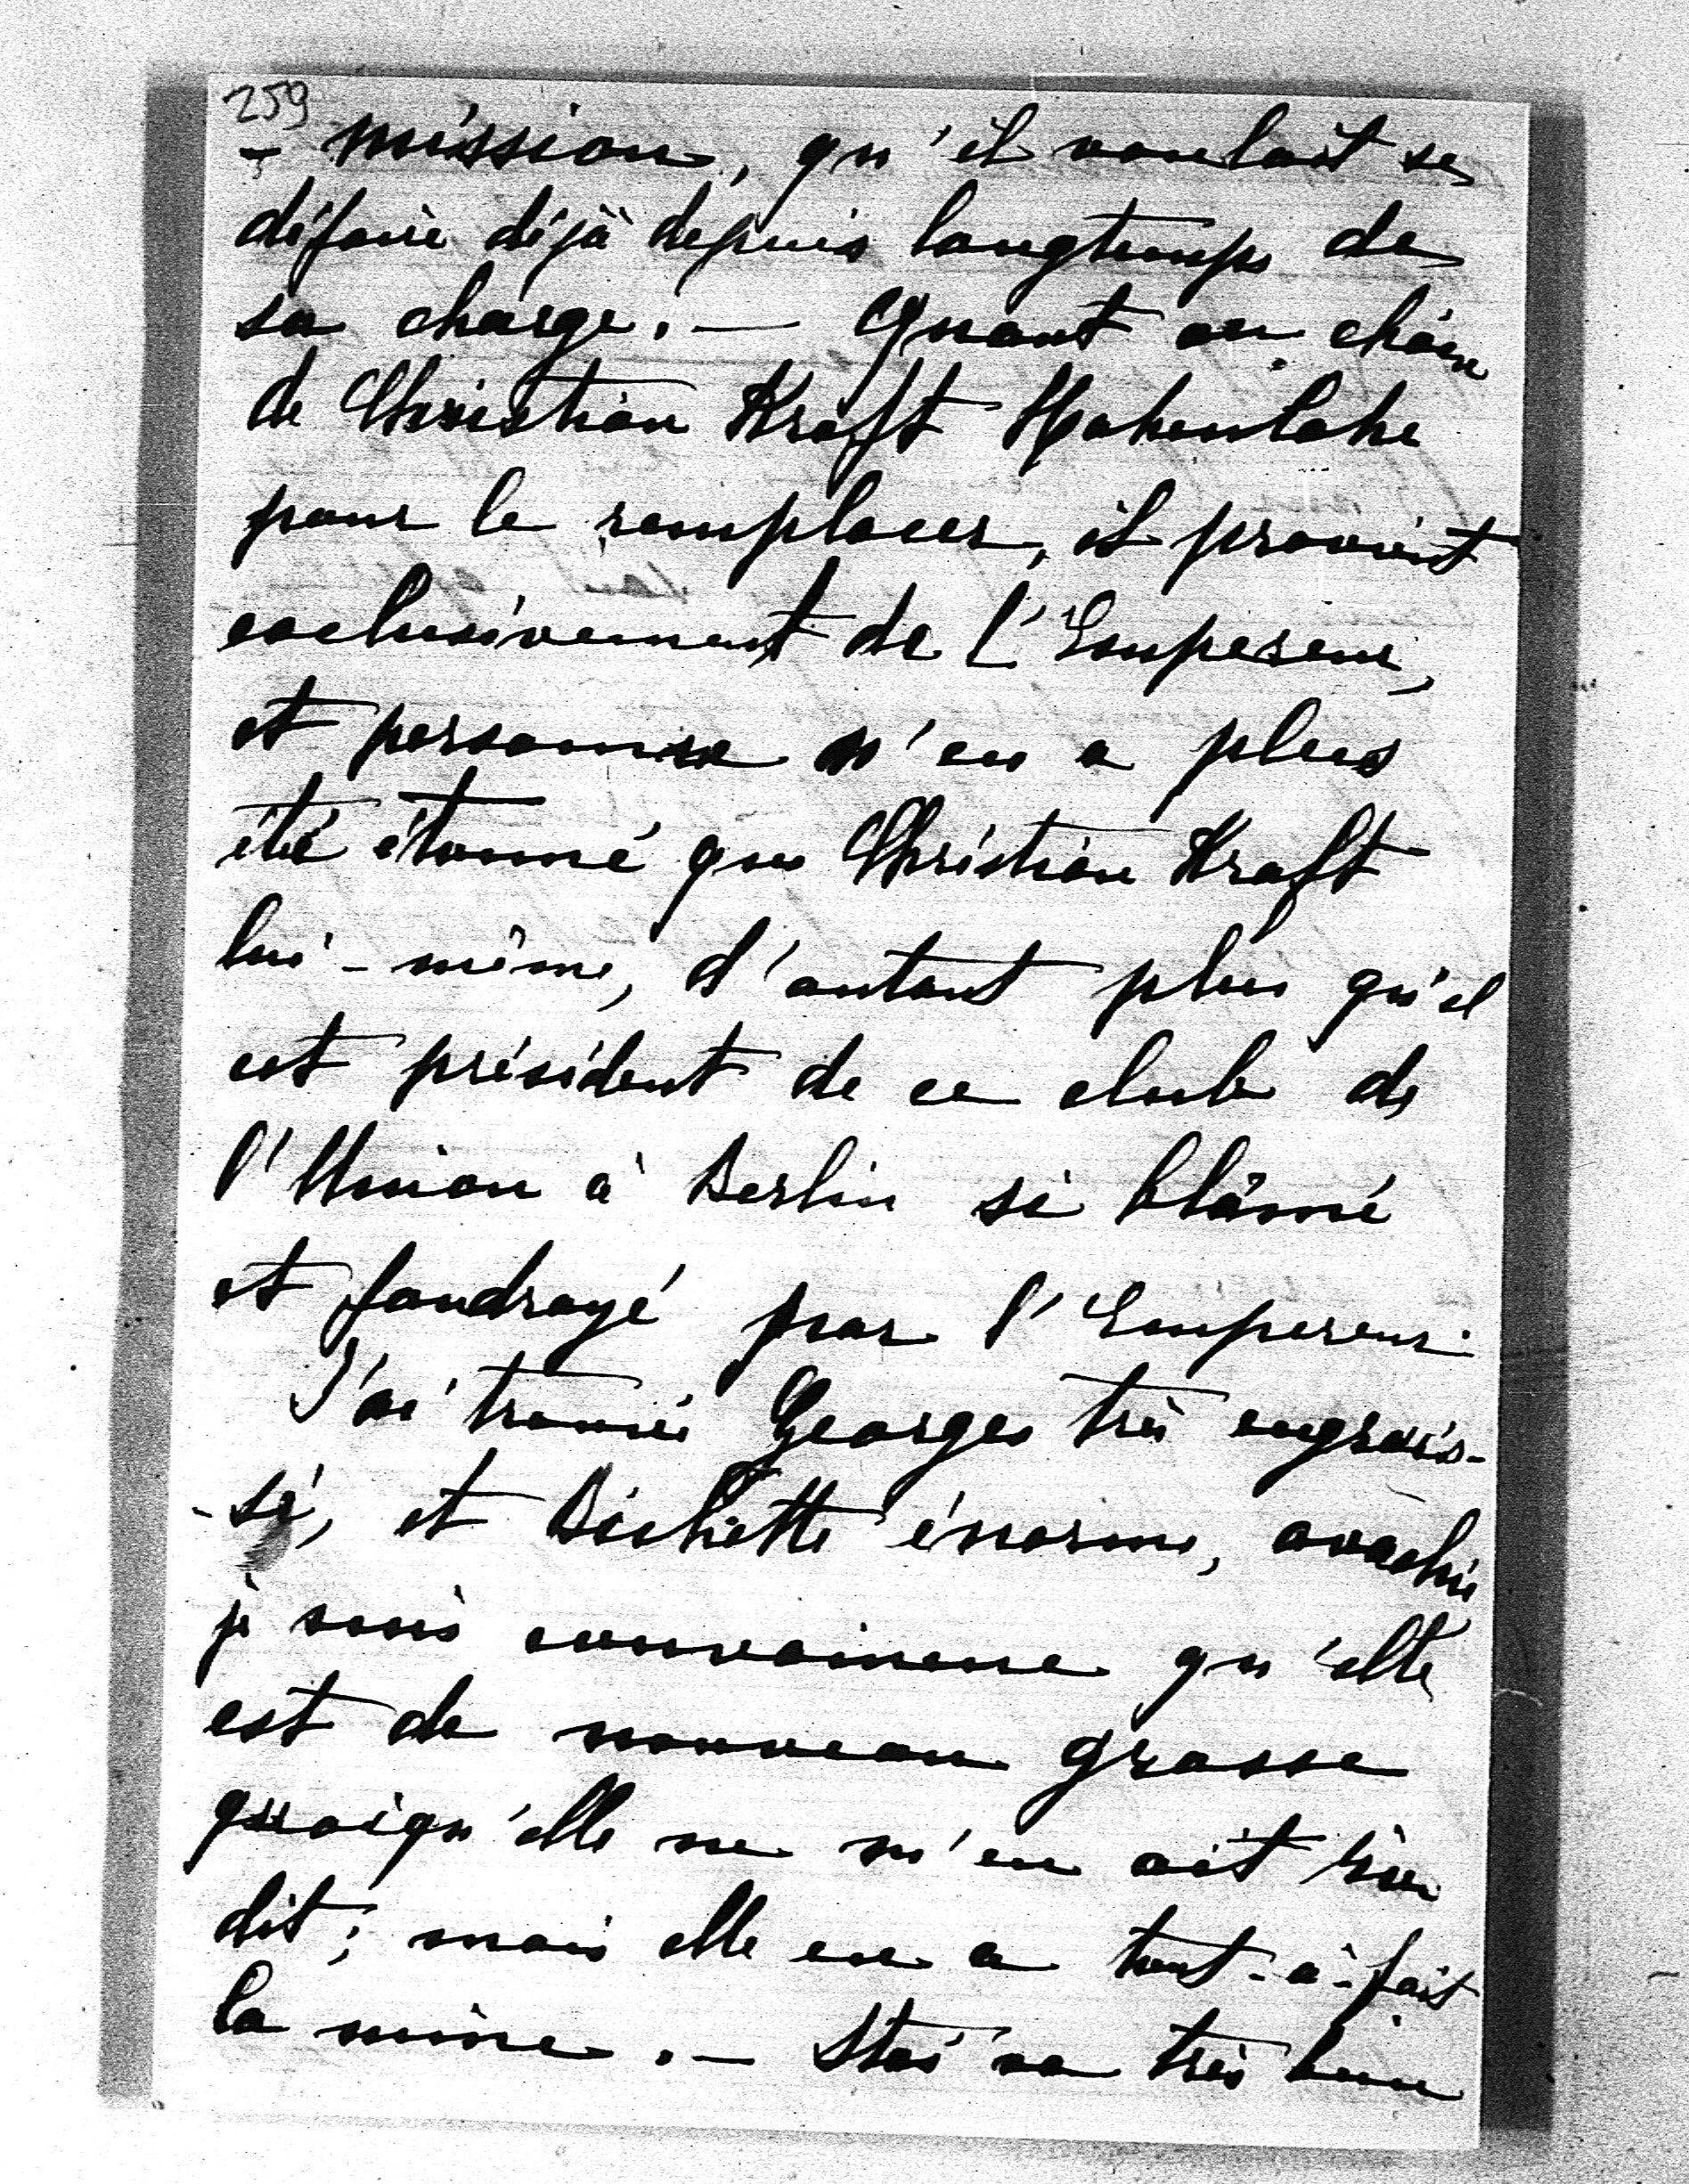 259
- mission, qu'il voulait se
défaire déjà depuis longtemps de
sa charge. — Quant au choix
de Christian Kraft Hohenlohe
pour le remplacer, il provient
exclusivement de l'Empereur,
et personne n'en a plus
été étonné que Christian Kraft
lui-même, d'autant plus qu'il
est président de ce club de
l'Union à Berlin si blâmé
et foudroyé par l'Empereur.
J'ai trouvé Georges très engrais-
-sé, et Bichette énorme, avachie
je suis convaincue qu'elle
est de nouveau grosse
quoiqu'elle ne m'en ait rien
dit; mais elle en a tout-à-fait
la mine. — Stas va très bien